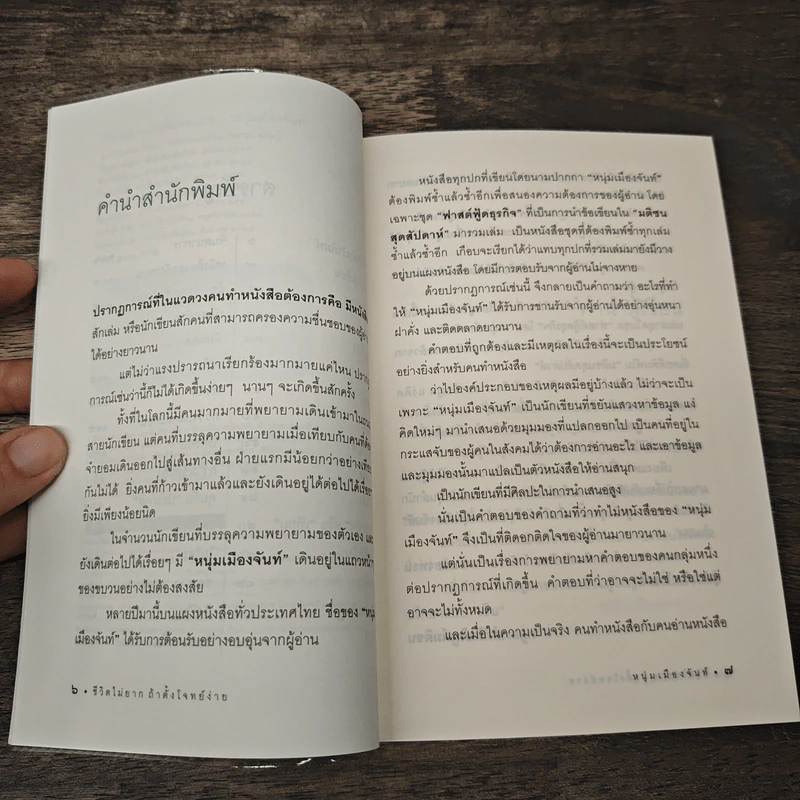 คำนำสำนักพิมพ์
ปรากฏการณ์ที่ในแวดวงคนทำหนังสือต้องการคือ มีหนังสือ
สักเล่ม หรือนักเขียนสักคนที่สามารถครองความชื่นชอบของผู้อ่าน
ได้อย่างยาวนาน
แต่ไม่ว่าแรงปรารถนาเรียกร้องมากมายแค่ไหน
การณ์เช่นว่านี้ก็ไม่ได้เกิดขึ้นง่ายๆ นานๆ จะเกิดขึ้นสักครั้ง
ทั้งที่ในโลกนี้มีคนมากมายที่พยายามเดินเข้ามาใน
สายนักเขียน แต่คนที่บรรลุความพยายามเมื่อเทียบกับคนที่ต้อง
จำยอมเดินออกไปสู่เส้นทางอื่น ฝ่ายแรกมีน้อยกว่าอย่างเทียบ
กันไม่ได้ ยิ่งคนที่ก้าวเข้ามาแล้วและยังเดินอยู่ได้ต่อไปได้เรื่อยๆ
ยิ่งมีเพียงน้อยนิด
ในจำนวนนักเขียนที่บรรลุความพยายามของตัวเอง และ
ยังเดินต่อไปได้เรื่อยๆ มี "หนุ่มเมืองจันท์" เดินอยู่ในแถวหน้า
ของขบวนอย่างไม่ต้องสงสัย
หลายปีมานี้บนแผงหนังสือทั่วประเทศไทย ชื่อของ "หนุ่ม
เมืองจันท์" ได้รับการต้อนรับอย่างอบอุ่นจากผู้อ่าน
๖ • ชีวิตไม่ยาก ถ้าตั้งโจทย์ง่าย
หนังสือทุกปกที่เขียนโดยนามปากกา "หนุ่มเมืองจันท์"
ต้องพิมพ์ซ้ำแล้วซ้ำอีกเพื่อสนองความต้องการของผู้อ่าน โดย
เฉพาะชุด "ฟาสต์ฟู้ดธุรกิจ" ที่เป็นการนำข้อเขียนใน "มติชน
สุดสัปดาห์" มารวมเล่ม เป็นหนังสือชุดที่ต้องพิมพ์ซ้ำทุกเล่ม
ซ้ำแล้วซ้ำอีก เกือบจะเรียกได้ว่าแทบทุกปกที่รวมเล่มมายังมีวาง
อยู่บนแผงหนังสือ โดยมีการตอบรับจากผู้อ่านไม่จางหาย
ด้วยปรากฏการณ์เช่นนี้ จึงกลายเป็นคำถามว่า อะไรที่ทำ
ให้ "หนุ่มเมืองจันท์" ได้รับการขานรับจากผู้อ่านได้อย่างอุ่นหนา
ฝาคั่ง และติดตลาดยาวนาน
คำตอบที่ถูกต้องและมีเหตุผลในเรื่องนี้จะเป็นประโยชน์
อย่างยิ่งสำหรับคนทำหนังสือ
ว่าไปองค์ประกอบของเหตุผลมีอยู่บ้างแล้ว ไม่ว่าจะเป็น
เพราะ "หนุ่มเมืองจันท์" เป็นนักเขียนที่ขยันแสวงหาข้อมูล แง่
คิดใหม่ๆ มานำเสนอด้วยมุมมองที่แปลกออกไป เป็นคนที่อยู่ใน
กระแสจับของผู้คนในสังคมได้ว่าต้องการอ่านอะไร และเอาข้อมูล
และมุมมองนั้นมาแปลเป็นตัวหนังสือให้อ่านสนุก
เป็นนักเขียนที่มีศิลปะในการนำเสนอสูง
นั่นเป็นคำตอบของคำถามที่ว่าทำไมหนังสือของ "หนุ่ม
เมืองจันท์" จึงเป็นที่ติดอกติดใจของผู้อ่านมายาวนาน
แต่นั่นเป็นเรื่องการพยายามหาคำตอบของคนกลุ่มหนึ่ง
ต่อปรากฏการณ์ที่เกิดขึ้น คำตอบที่ว่าอาจจะไม่ใช่ หรือใช่แต่
อาจจะไม่ทั้งหมด
และเมื่อในความเป็นจริง คนทำหนังสือกับคนอ่านหนังสือ
หนุ่มเมืองจันท์ • ๗